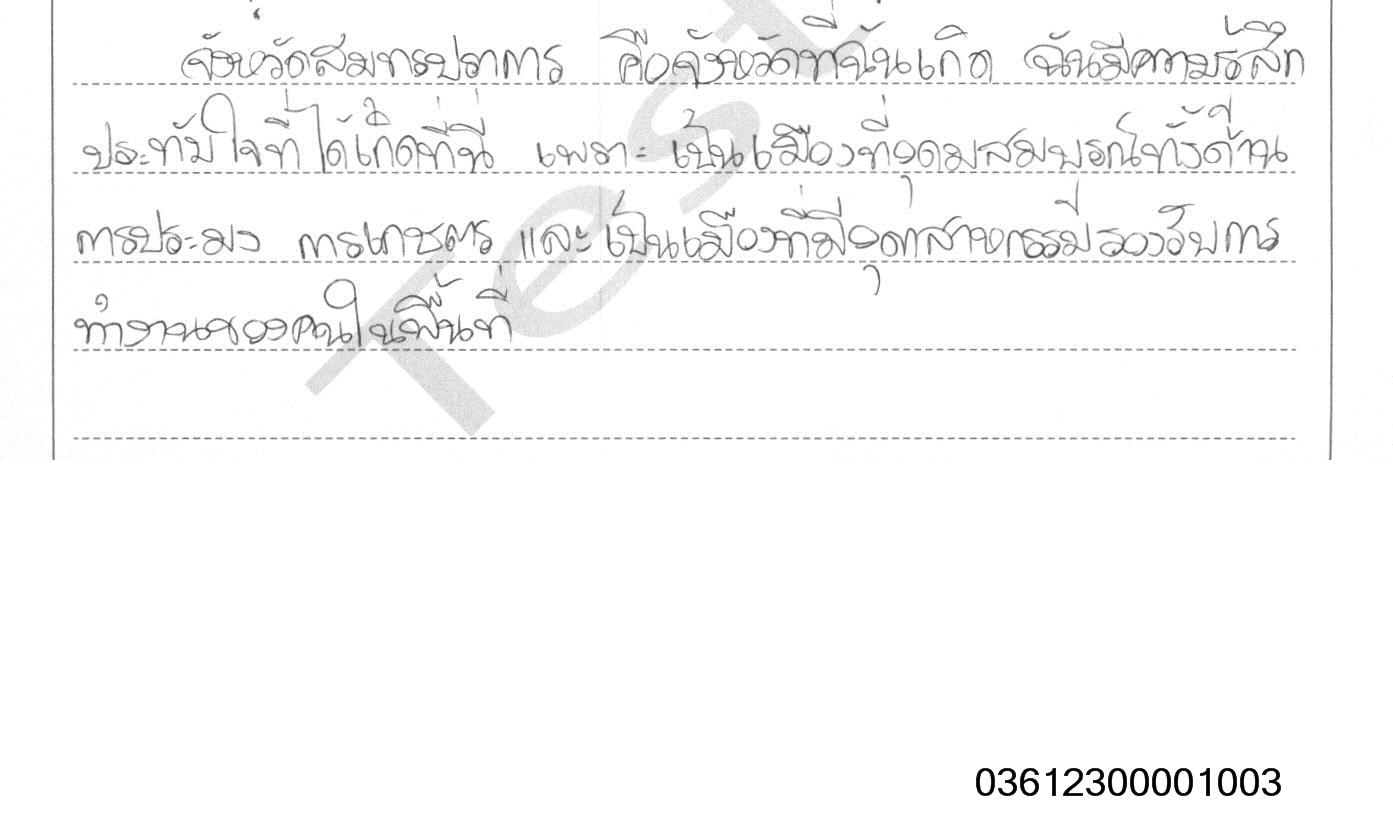 จังหวัดสมุทรปราการ คือจังหวัดที่ฉันเกิด ฉันมีความรู้สึก
ประทับใจที่ได้เกิดที่นี่ เพราะ เป็นเมืองที่อุดมสมบูรณ์ทั้งด้าน
การประมง การเกษตร และเป็นเมืองที่มีอุตสาหกรรมที่รองรับการ
ทำงานของคนในพื้นที่
Test
03612300001003